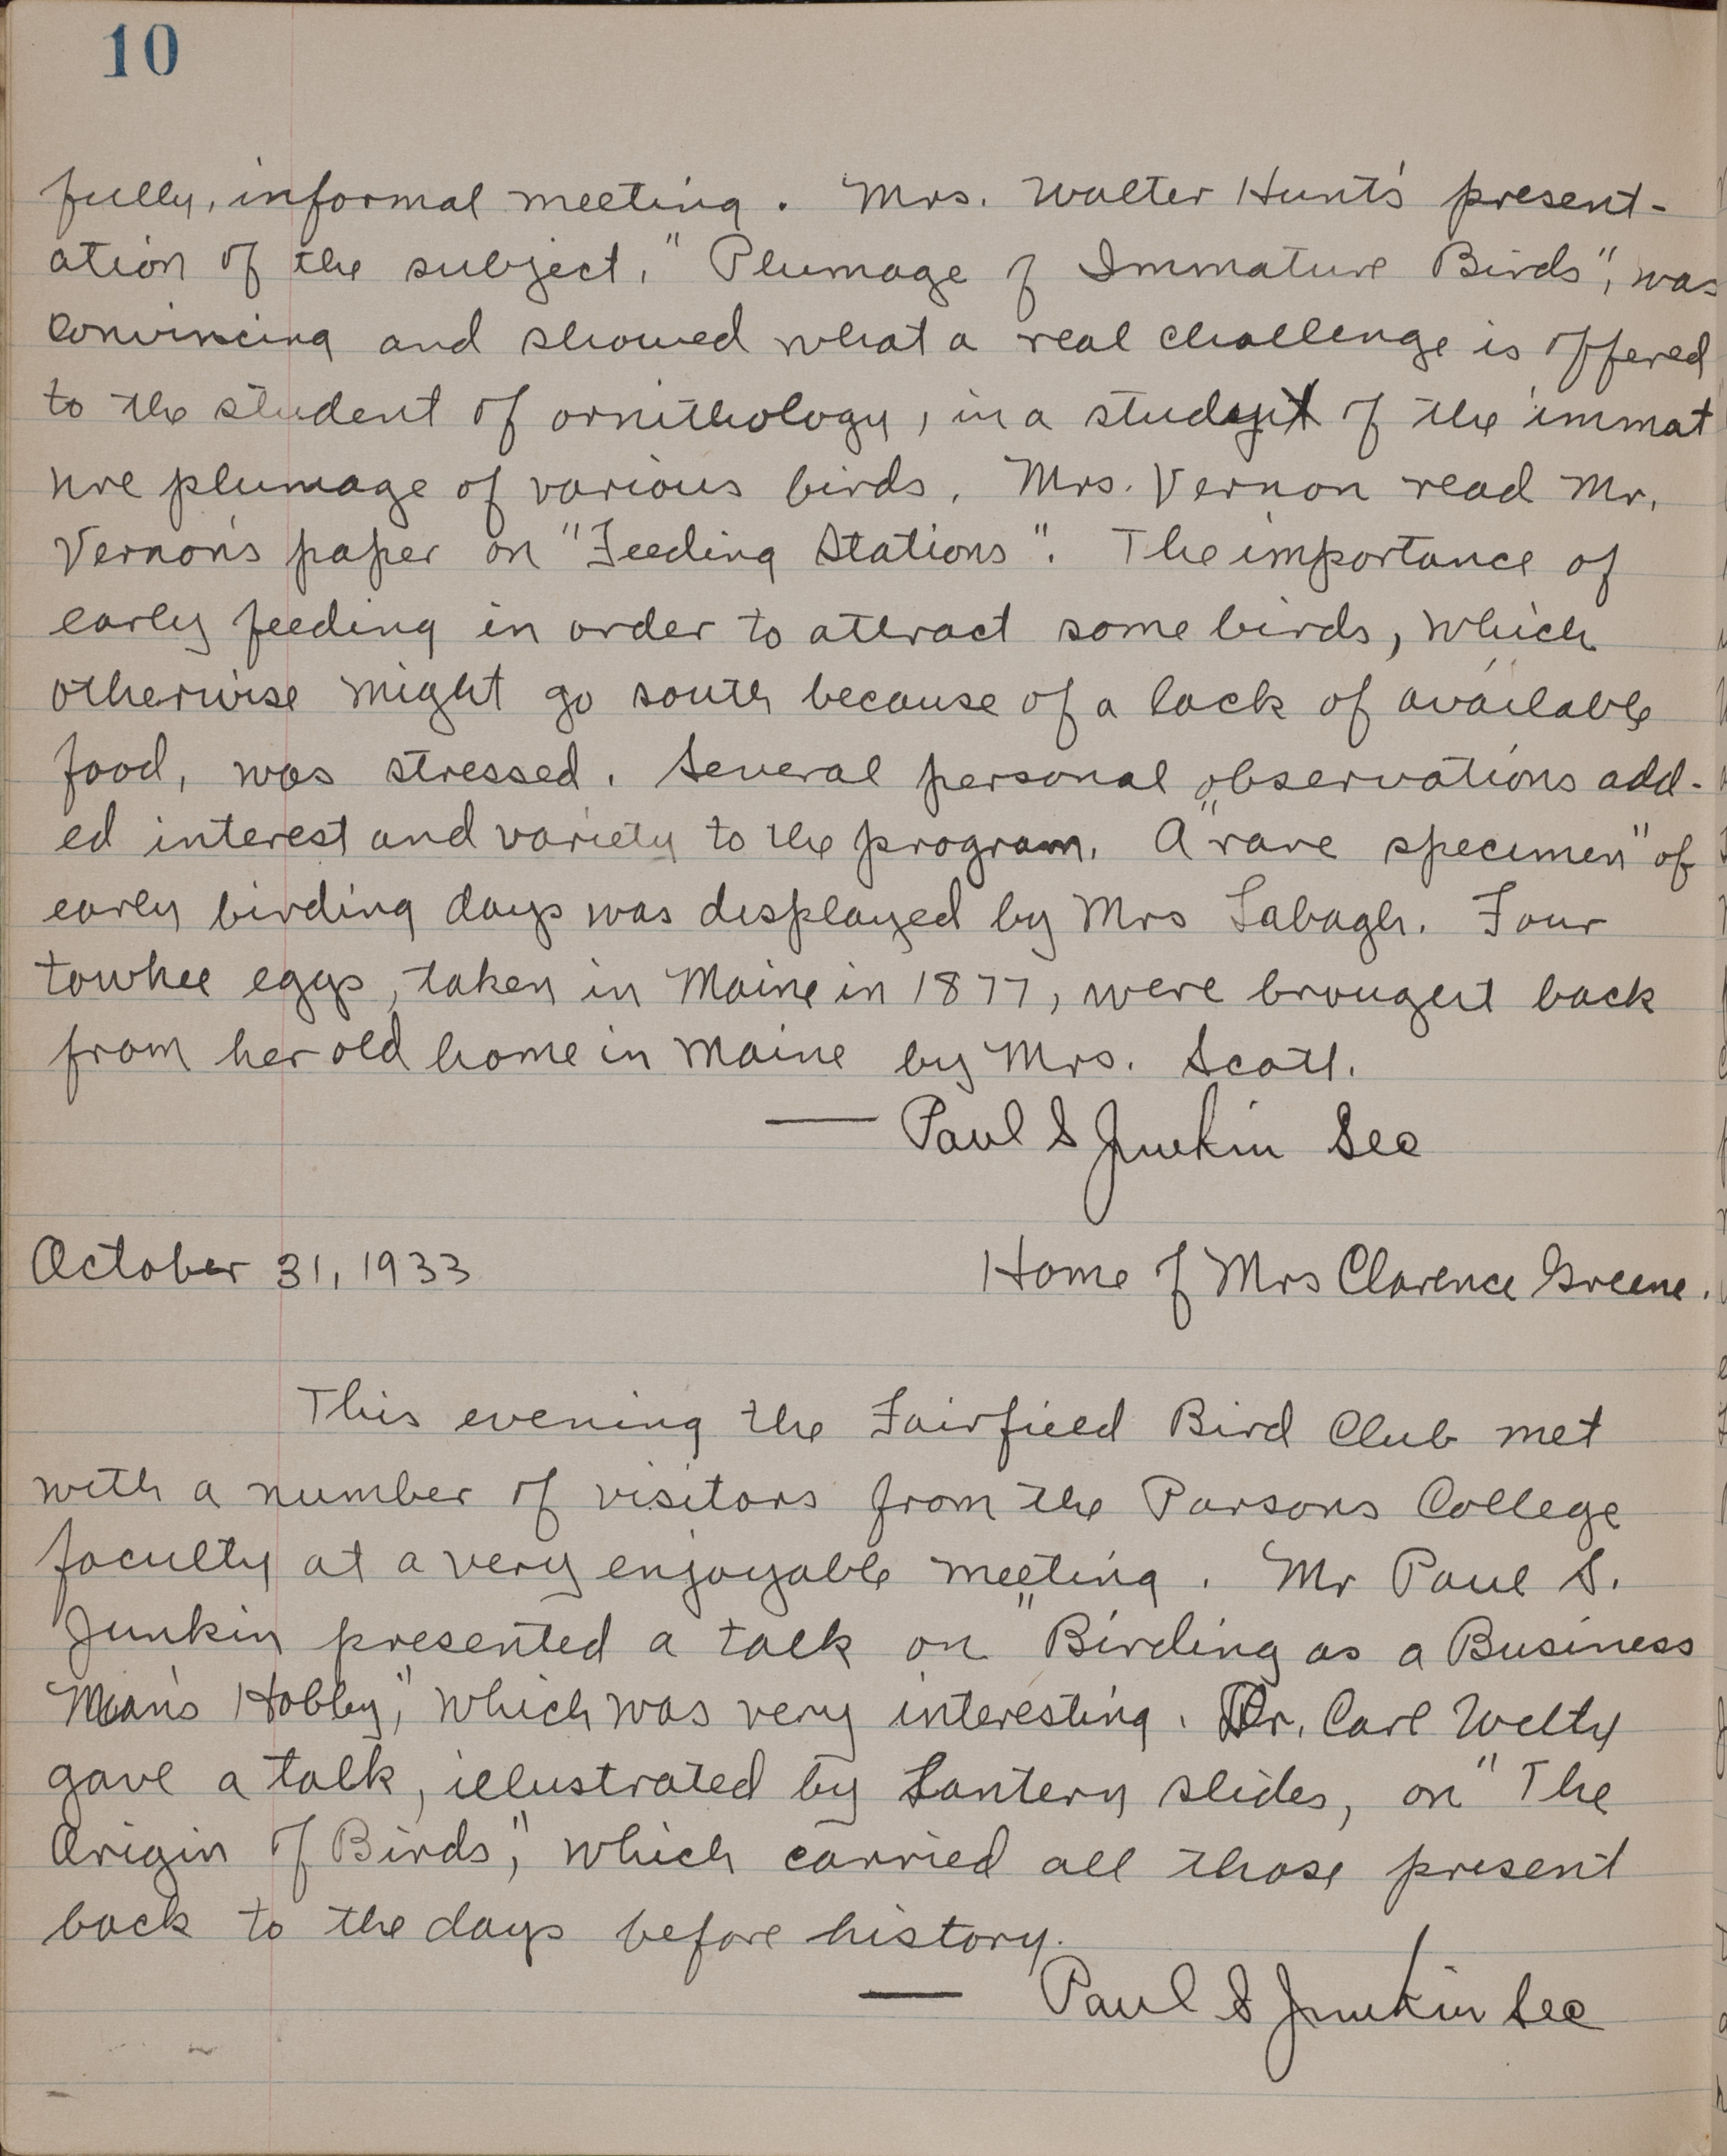 10
fully, informal meeting. Mrs. Walter Hunt's present-
ation of the subject, "Plumage of Immature Birds", was
convincing and showed what a real challenge is offered
to the student of ornithology, in a study of the immat
ure plumage of various birds. Mrs. Vernon read Mr.
Vernon's paper on "Feeding Stations". The importance of
early feeding in order to attract some birds, which
otherwise might go south because of a lack of available
food, was stressed. Several personal observations add-
ed interest and variety to the program. A "rare specimen" of
early birding days was displayed by Mrs Labagh. Four
towhee eggs, taken in Maine in 1877, were brought back
from her old home in Maine by Mrs. Scott.
— Paul S Junkin Sec
October 31, 1933 Home of Mrs Clarence Greene.
This evening the Fairfield Bird Club met
with a number of visitors from the Parsons College
faculty at a very enjoyable meeting. Mr Paul S.
Junkin presented a talk on "Birding as a Business
Man's Hobby," which was very interesting. Dr. Carl Welty
gave a talk, illustrated by Lantern slides, on "The
Origin of Birds," which carried all those present
back to the days before history.
— Paul S Junkin Sec